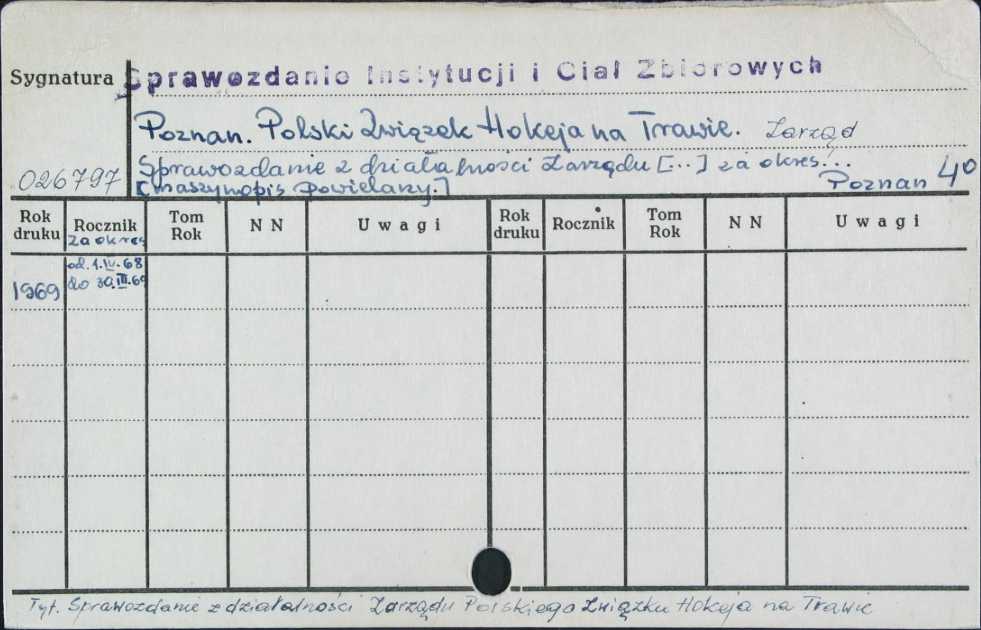 Sygnatura
Sprawozdanie Instytucji i Ciał Zbiorowych
Poznań. Polski Związek Hokeja na Trawie. Zarząd
Sprawozdanie z działalności Zarządu [...] za okres...
026797 [maszynopis powielany.] Poznań 4°
Rok druku Rocznik za okres Tom Rok N N Uwagi Rok druku Rocznik Tom Rok N N Uwagi
1969 od. 1.IV.68 do 30.III.69
Tyt. Sprawozdanie z działalności Zarządu Polskiego Związku Hokeja na Trawie